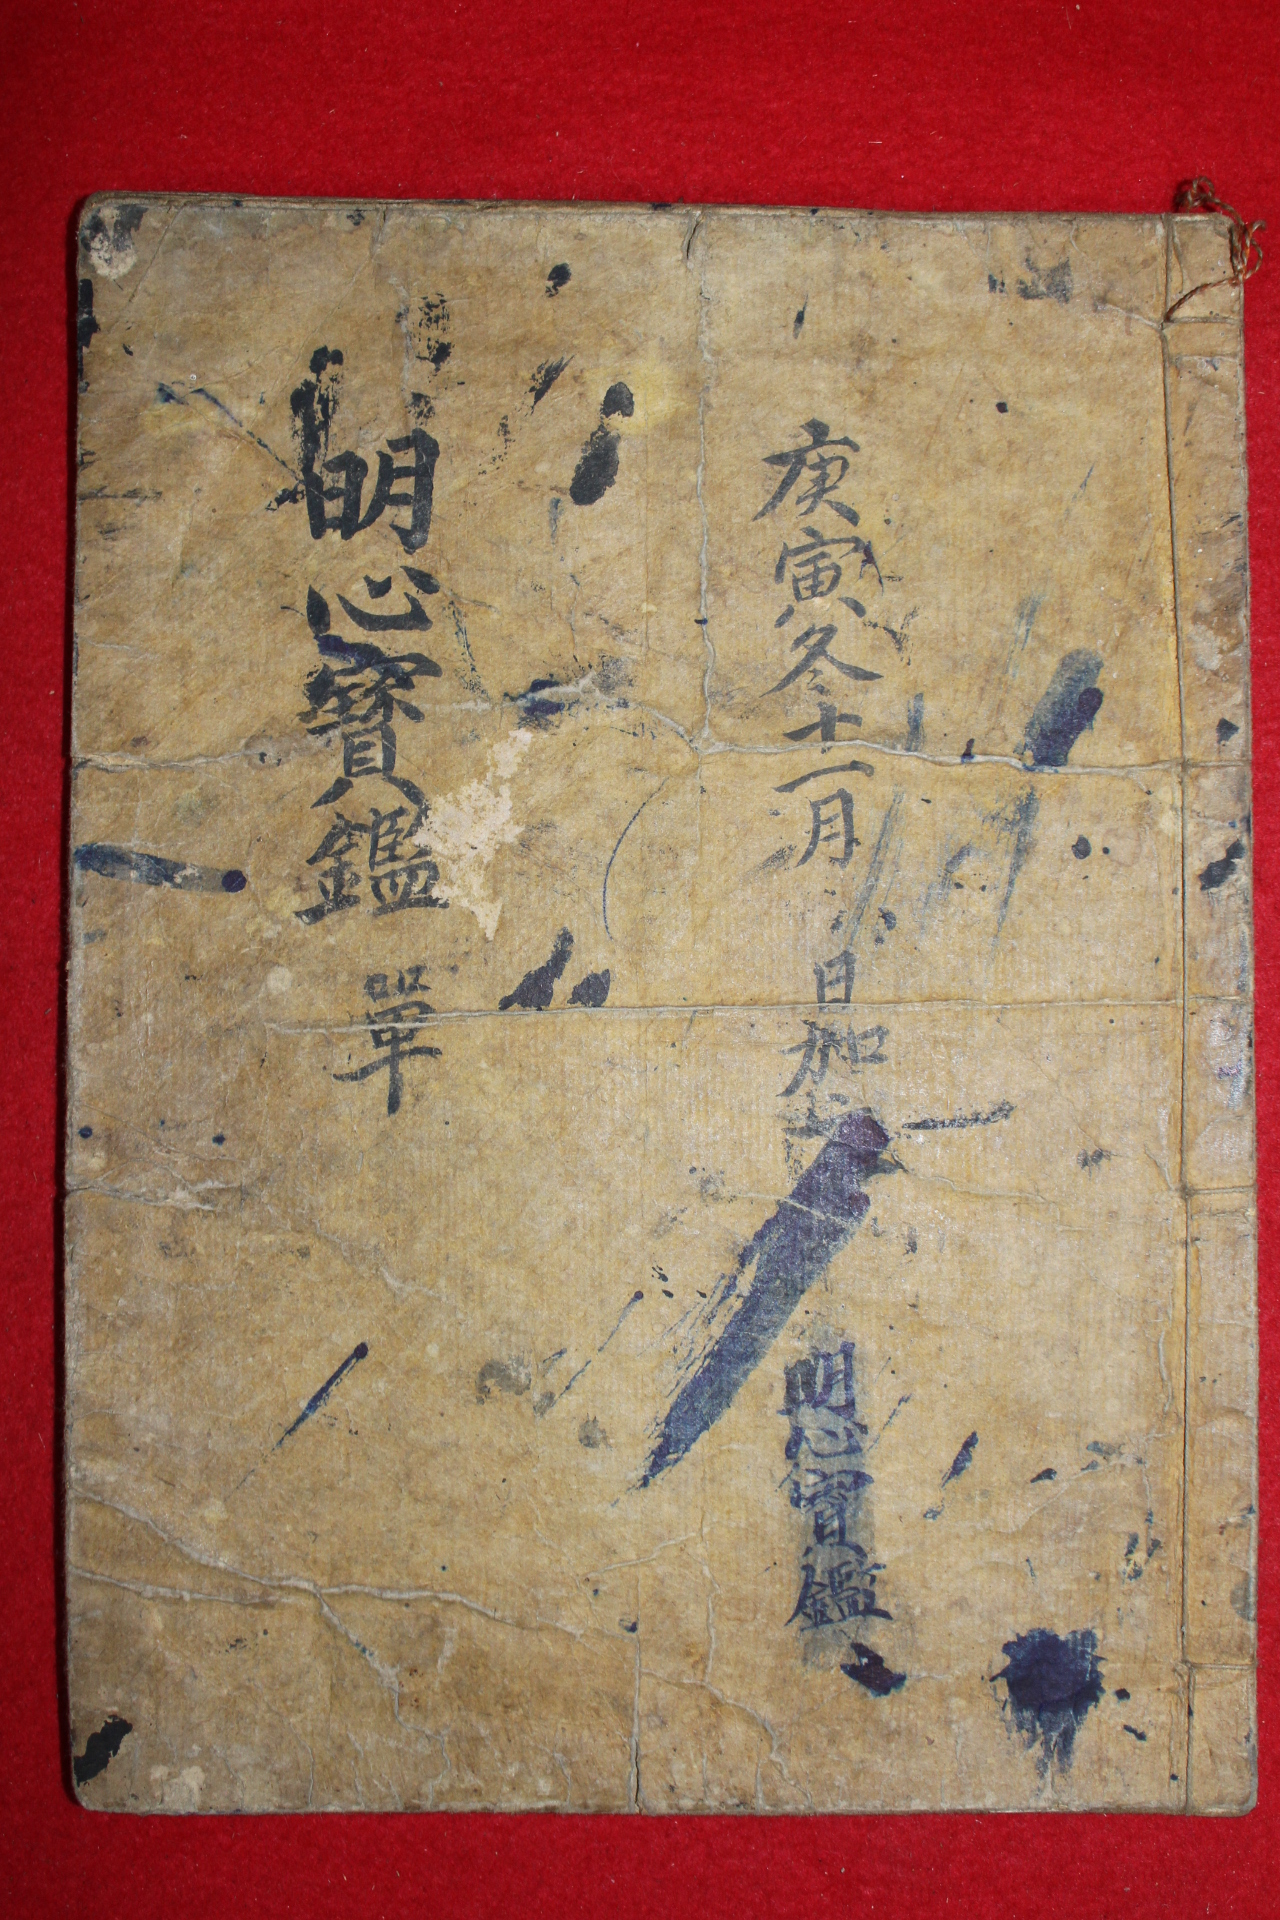 庚寅冬十一月 日加
明心寶鑑
明心寶鑑 單